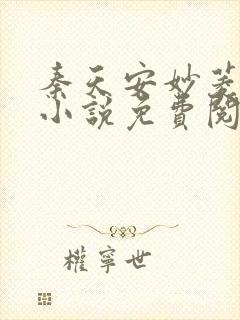 秦天安妙菱
小説免費閱
權寧世